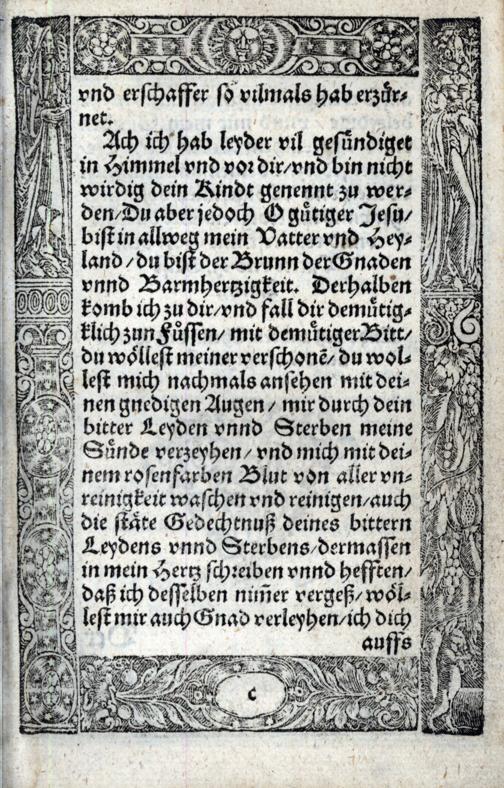 vnd erschaffer so vilmals hab erzür-
net.
Ach ich hab leyder vil gesündiget
in Himmel vnd vor dir/vnd bin nicht
wirdig dein Kindt genennt zu wer-
den/Du aber jedoch O gütiger Jesu/
bist in allweg mein Vatter vnd Hey-
land/du bist der Brunn der Gnaden
vnnd Barmhertzigkeit. Derhalben
komb ich zu dir/vnd fall dir demütig-
klich zun Füssen/ mit demütiger Bitt/
du wöllest meiner verschonē/du wol-
lest mich nachmals ansehen mit dei-
nen gnedigen Augen/ mir durch dein
bitter Leyden vnnd Sterben meine
Sünde verzeyhen/vnd mich mit dei-
nem rosenfarben Blut von aller vn-
reinigkeit waschen vnd reinigen/auch
die stäte Gedechtnuß deines bittern
Leydens vnnd Sterbens/dermassen
in mein Hertz schreiben vnnd hefften/
daß ich desselben nim̄er vergeß/wöl-
lest mir auch Gnad verleyhen/ich dich
auffs
c